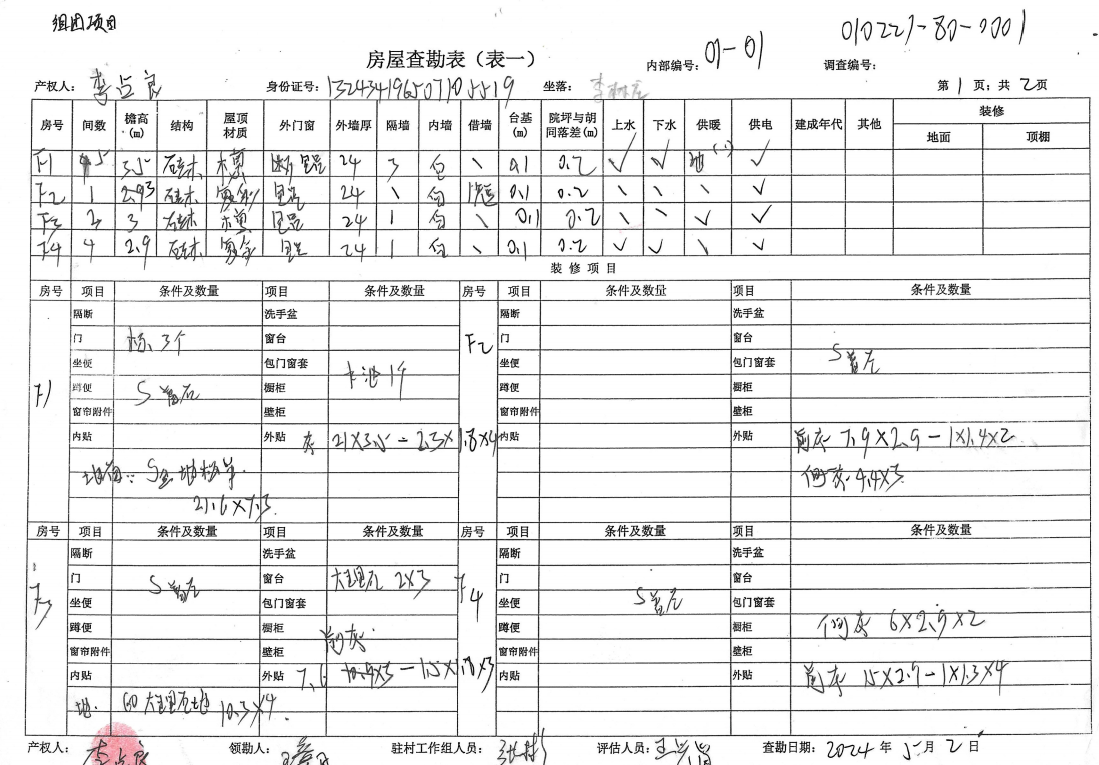 组团项目
010227-80-0001
房屋查勘表（表一）
内部编号：01-01 调查编号：
产权人：李占良 身份证号：132434196507105519 坐落： 第1页；共2页
房号 间数 檐高(m) 结构 屋顶材质 外门窗 外墙厚 隔墙 内墙 借墙 台基(m) 院坪与胡同落差(m) 上水 下水 供暖 供电 建成年代 其他 装修
地面 顶棚
F1 5 3.5 砖木 断 24 3 白 \ 0.1 0.2 ✓ ✓ 地 ✓
F2 1 2.93 砖木 24 \ 白 0.1 0.2 \ \ \ ✓
F3 3 砖木 24 1 白 \ 0.1 0.2 \ \ ✓ ✓
F4 4 2.9 砖木 24 1 白 \ 0.1 0.2 ✓ ✓ \ ✓
装修项目
房号 项目 条件及数量 项目 条件及数量 房号 项目 条件及数量 项目 条件及数量
F1 F2
隔断 洗手盆 隔断 洗手盆
门 3个 窗台 门 窗台
坐便 包门窗套 坐便 包门窗套
蹲便 橱柜 蹲便 橱柜
窗帘附件 壁柜 窗帘附件 壁柜
内贴 外贴 灰 21×3.5-2.3×1.8×4 内贴 外贴 前灰 7.9×2.9-1×1.4×2
侧灰 4.4×3
21.6×7.3
房号 项目 条件及数量 项目 条件及数量 房号 项目 条件及数量 项目 条件及数量
F3 F4
隔断 洗手盆 隔断 洗手盆
门 窗台 大理石 2×3 门 窗台
坐便 包门窗套 坐便 包门窗套
蹲便 橱柜 前灰 蹲便 橱柜 侧灰 6×2.9×2
窗帘附件 壁柜 窗帘附件 壁柜
内贴 外贴 内贴 外贴 前灰 15×2.9-1×1.3×4
地. 60大理石地 10.3×4
产权人：李占良 领勘人： 驻村工作组人员：张彬 评估人员： 查勘日期：2024年5月2日